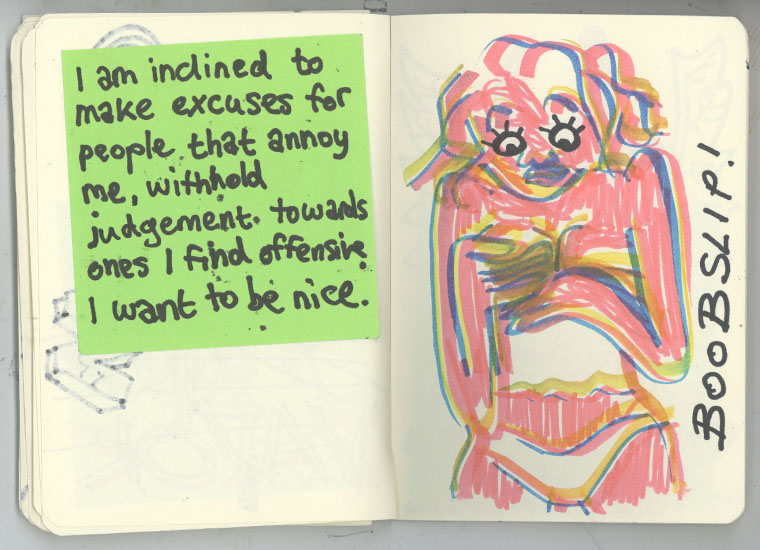 I am inclined to
make excuses for
people that annoy
me, withhold
judgement. towards
ones I find offensive
I want to be nice.
BOOBSLIP!